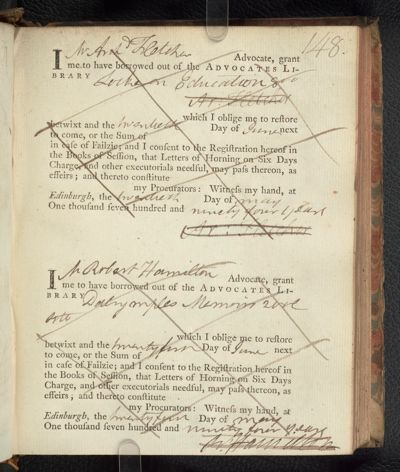 148.
I Mr Archd Fletcher Advocate, grant
me to have borrowed out of the ADVOCATES LI-
BRARY Locke on Education 8vo
Ar. Fletcher
which I oblige me to restore
betwixt and the twentieth Day of June next
to come, or the Sum of
in case of Failzie; and I consent to the Registration hereof in
the Books of Session, that Letters of Horning on Six Days
Charge, and other executorials needful, may pass thereon, as
effeirs; and thereto constitute
my Procurators: Witness my hand, at
Edinburgh, the twentieth Day of May
One thousand seven hundred and ninety four years
Ar. Fletcher
I Mr Robert Hamilton Advocate, grant
me to have borrowed out of the ADVOCATES LI-
BRARY Dalrymples Memoirs 2 vol
which I oblige me to restore
betwixt and the twenty first Day of June next
to come, or the Sum of
in case of Failzie; and I consent to the Registration hereof in
the Books of Session, that Letters of Horning on Six Days
Charge, and other executorials needful, may pass thereon, as
effeirs; and thereto constitute
my Procurators: Witness my hand, at
Edinburgh, the twenty first Day of May
One thousand seven hundred and ninety four years
Hamilton